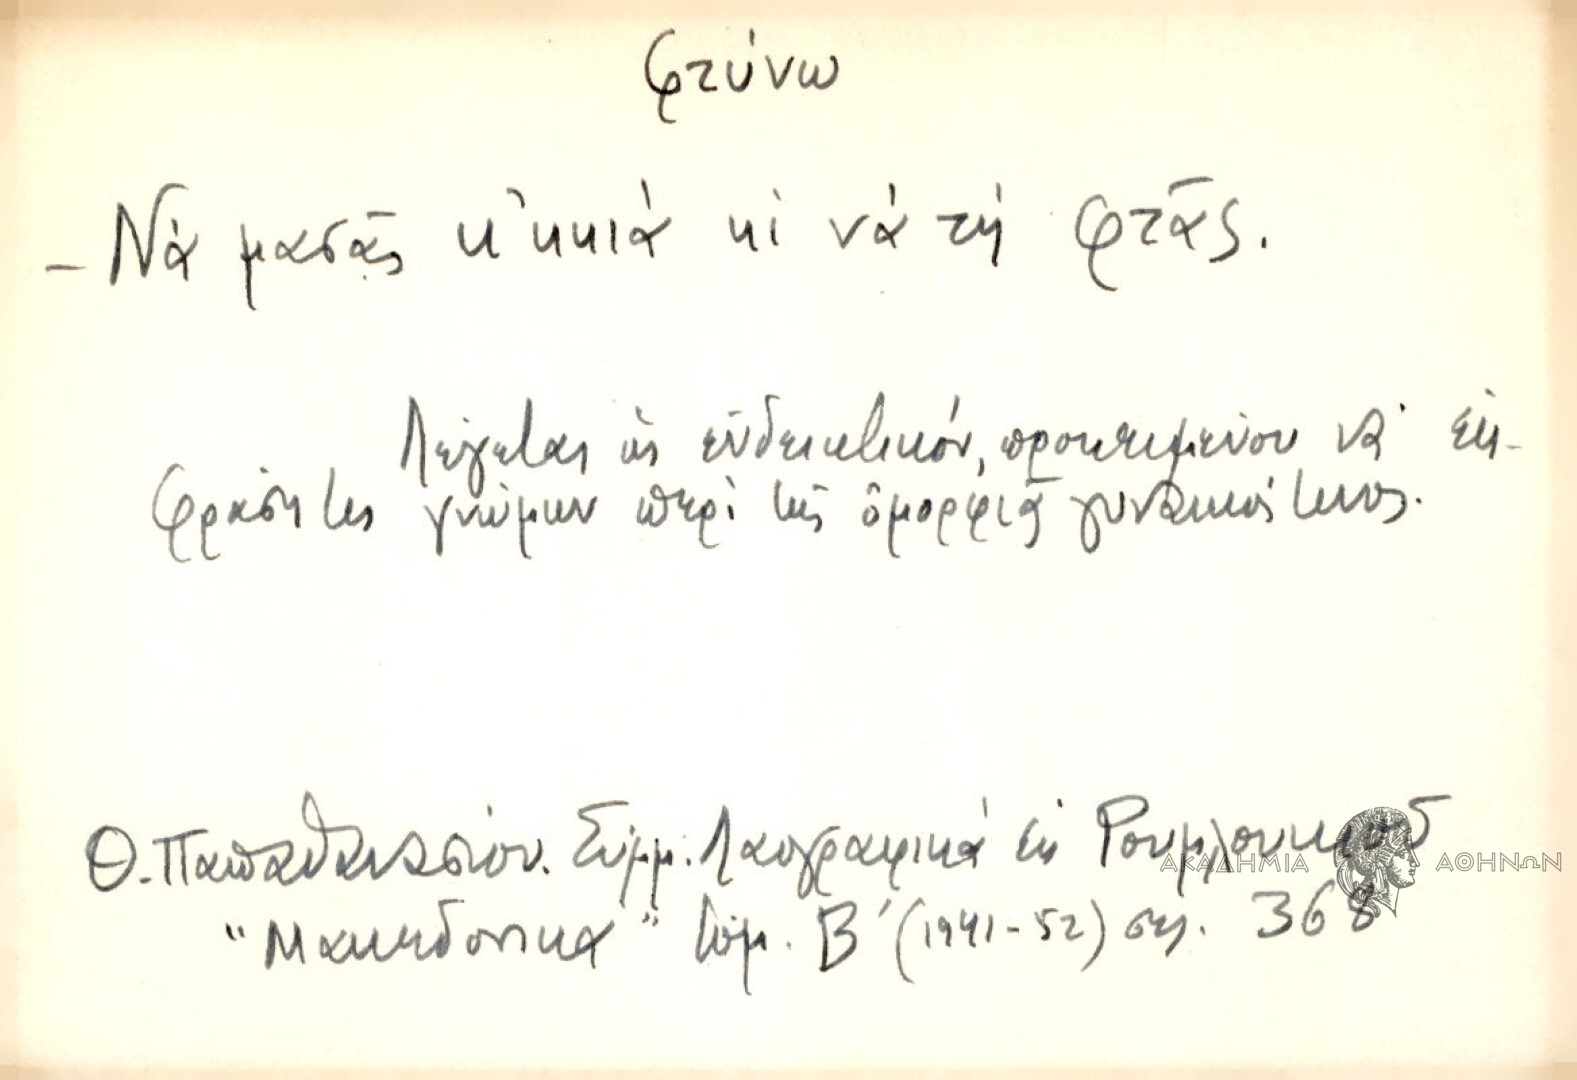 φτύνω
- Νὰ μασᾶς κ̓κκιά κὶ νά τή φτᾶς.
Λέγεται ὡς ἐνδεικτικόν, προκειμένου νὰ ἐκ-
φράση τις γνώμην περὶ τῆς ὀμορφιᾶς γυναικός τινος.
Θ. Παπαθανασίου. Σύμμ. Λαογραφικά ἐκ Ρουμλουκιοῦ
"Μακεδονικα" τόμ. Β´ (1941-52) σελ. 368
ΑΚΑΔΗΜΙΑ ΑΘΗΝΩΝ